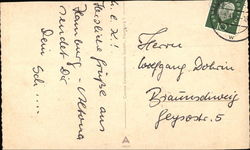 L. E. K!
Herzliche Grüße aus
Hamburg-Altona
sendet Dir
Dein Sch....
Herrn
Wolfgang Dohrin
Braunschweig
Geysostr. 5